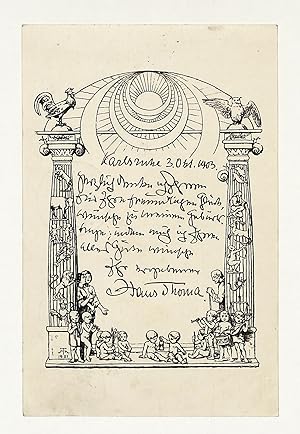 Karlsruhe 3 Okt. 1903
Herzlich danke ich Ihnen
für Ihre freundlichen Glück-
wünsche zu meinem Geburts-
tage; indem auch ich Ihnen
alles Gute wünsche
Ihr ergebener
Hans Thoma